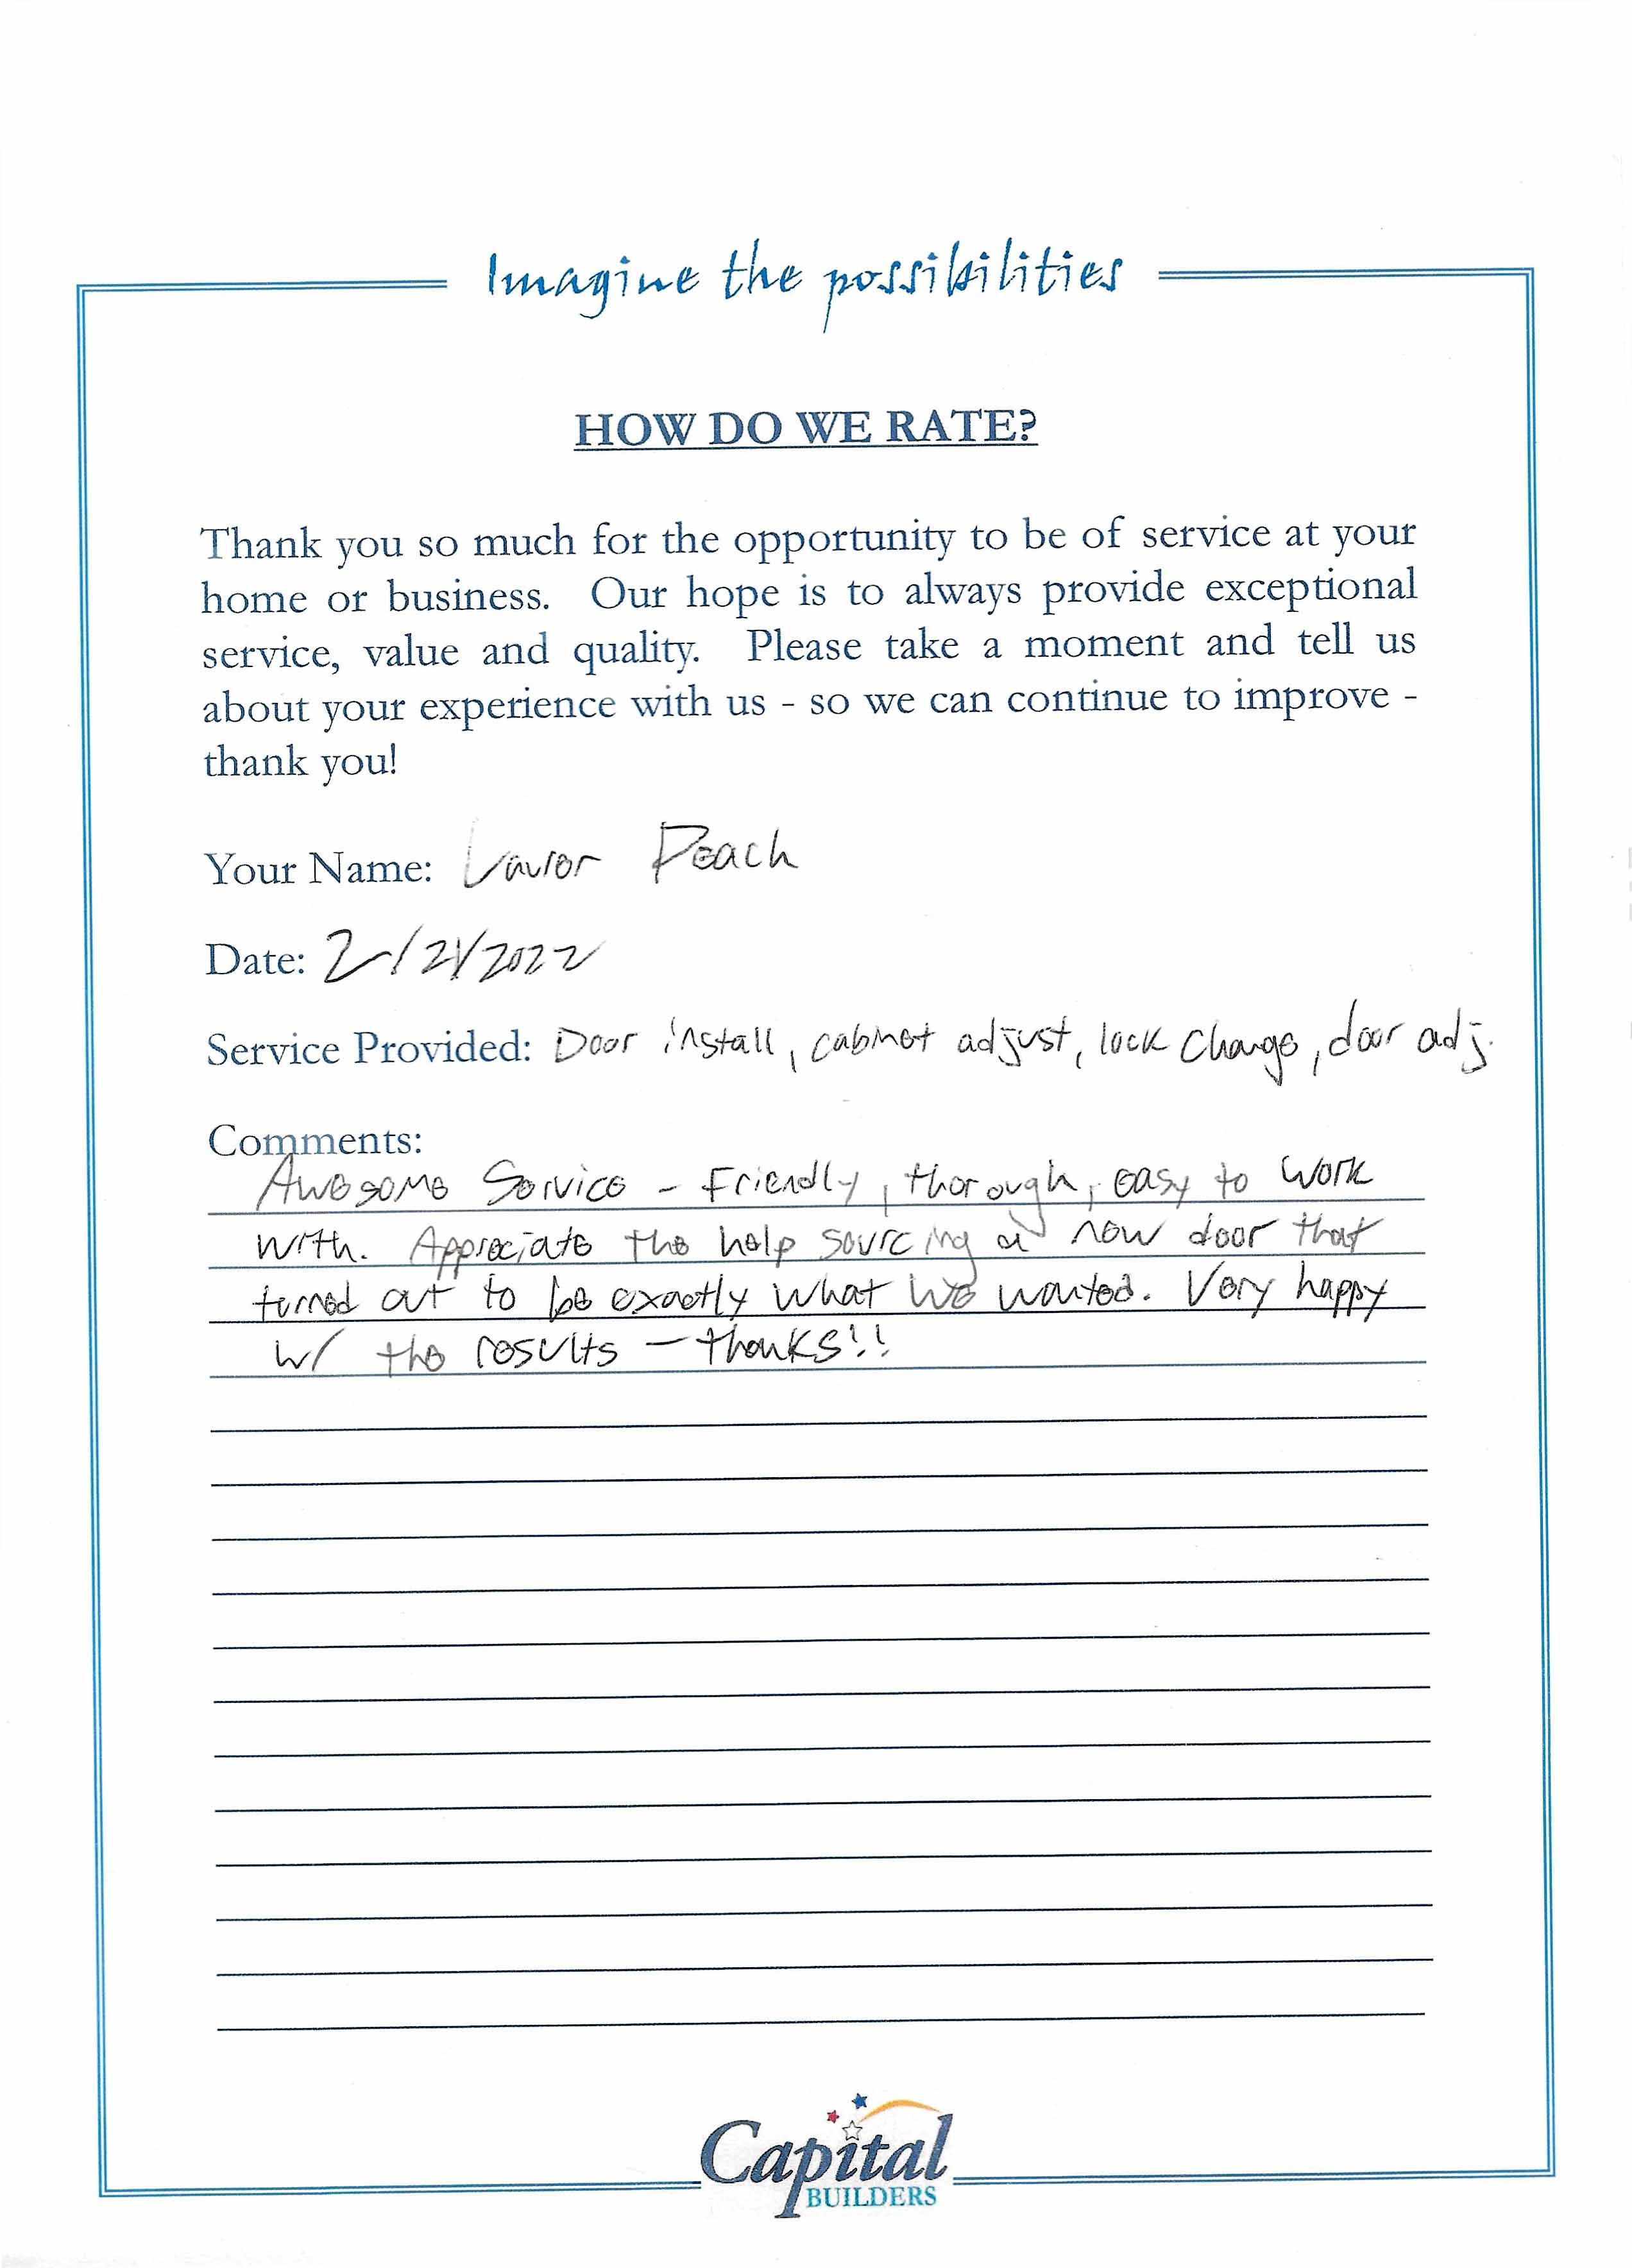 Imagine the possibilities
HOW DO WE RATE?
Thank you so much for the opportunity to be of service at your
home or business. Our hope is to always provide exceptional
service, value and quality. Please take a moment and tell us
about your experience with us - so we can continue to improve -
thank you!
Your Name: Peach
Date: 2/21/2022
Service Provided: Door install, cabinet adjust, lock change, door adj.
Comments:
Awesome Service - Friendly, thorough, easy to work
with. Appreciate the help sourcing a new door that
turned out to be exactly what we wanted. Very happy
w/ the results - thanks!!
Capital
BUILDERS